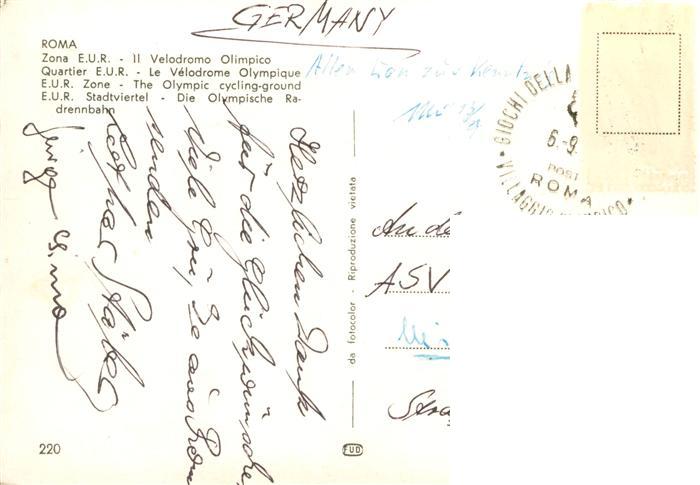 GERMANY
ROMA
Zona E.U.R. - Il Velodromo Olimpico
Quartier E.U.R. - Le Vélodrome Olympique
E.U.R. Zone - The Olympic cycling-ground
E.U.R. Stadtviertel - Die Olympische Ra-
drennbahn
Allen zur
GIOCHI DELLA
6-9
POST
ROMA
VILLAGGIO
Herzlichen Dank
für die Glückwünsche,
viele Grüße aus Rom
senden
Lothar
da fotocolor - Riproduzione vietata
An de
ASV
Stra
220
FUD